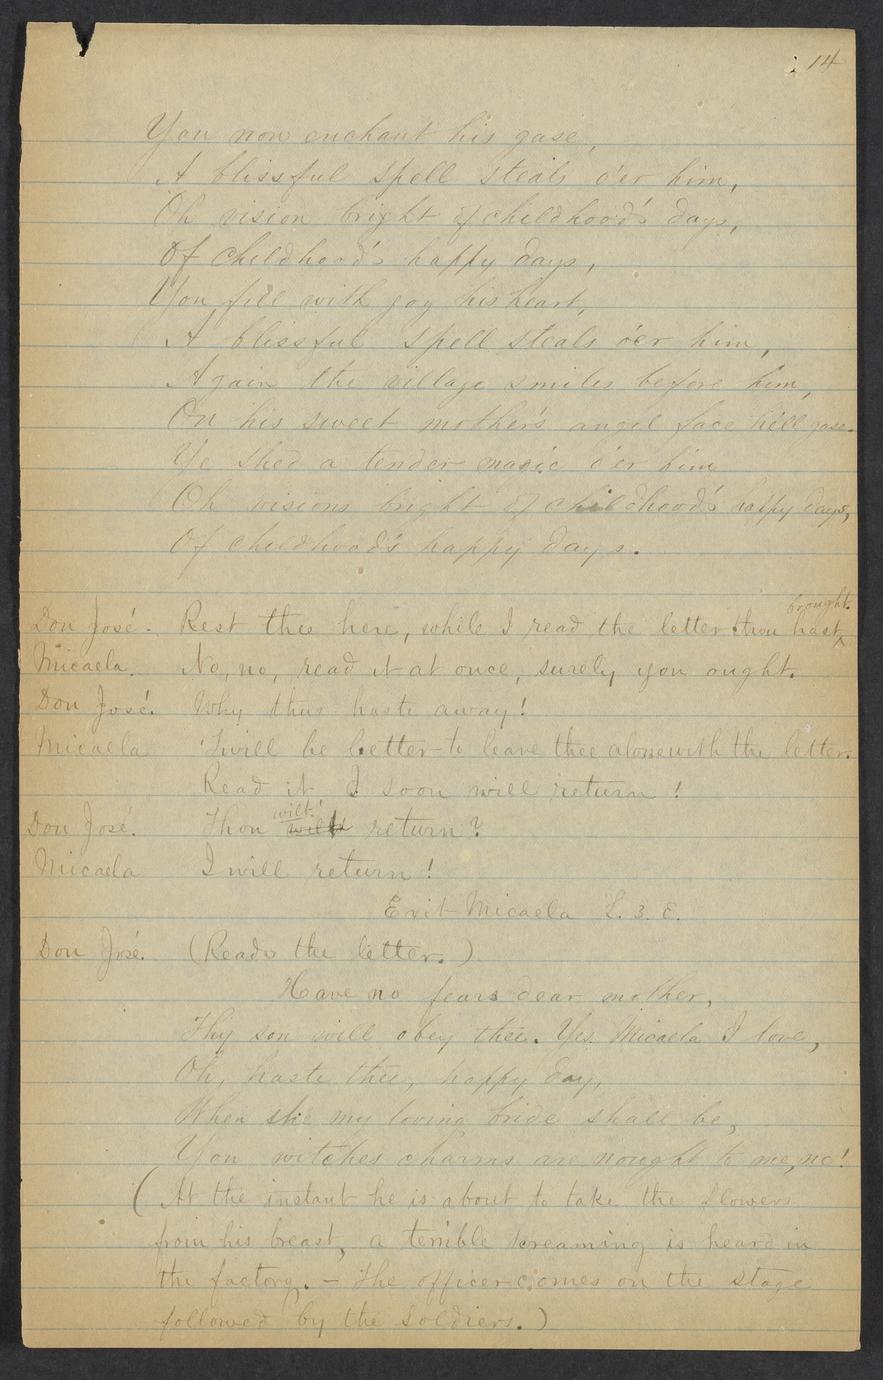 14
You now enchant his gase,
A blissful spell steals o'er him,
Oh vision bright of childhood's days,
Of childhood's happy days,
You fill with joy his heart,
A blissful spell steals o'er him,
Again the village smiles before him,
On his sweet mother's angel face he'll gase.
Ye shed a tender magic o'er him
Oh visions bright of childhood's happy days,
Of childhood's happy days.
brought.
Don José. Rest thee here, while I read the letter thou hast ^
Micaela. No, no, read it at once, surely you ought.
Don José. Why thus haste away!
Micaela 'Twill be better to leave thee alone with the letter.
Read it I soon will return!
wilt
Don José. Thou wilt return?
Micaela I will return!
Exit Micaela L. 3. E.
Don José. (Reads the letter.)
Have no fears dear mother,
Thy son will obey thee. Yes Micaela I love,
Oh, haste thee, happy day,
When she my loving bride shall be,
You witches charms are nought to me, no!
(At the instant he is about to take the flowers
from his breast, a terrible screaming is heard in
the factory. - The officer comes on the stage
followed by the soldiers.)